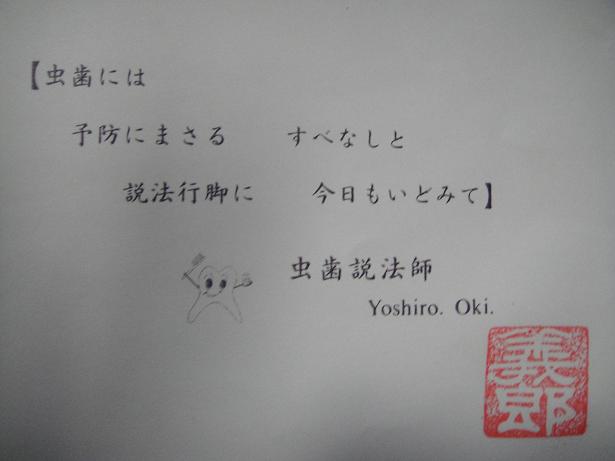 【虫歯には
予防にまさる　すべなしと
説法行脚に　今日もいどみて】
虫歯説法師
Yoshiro. Oki.
義郎